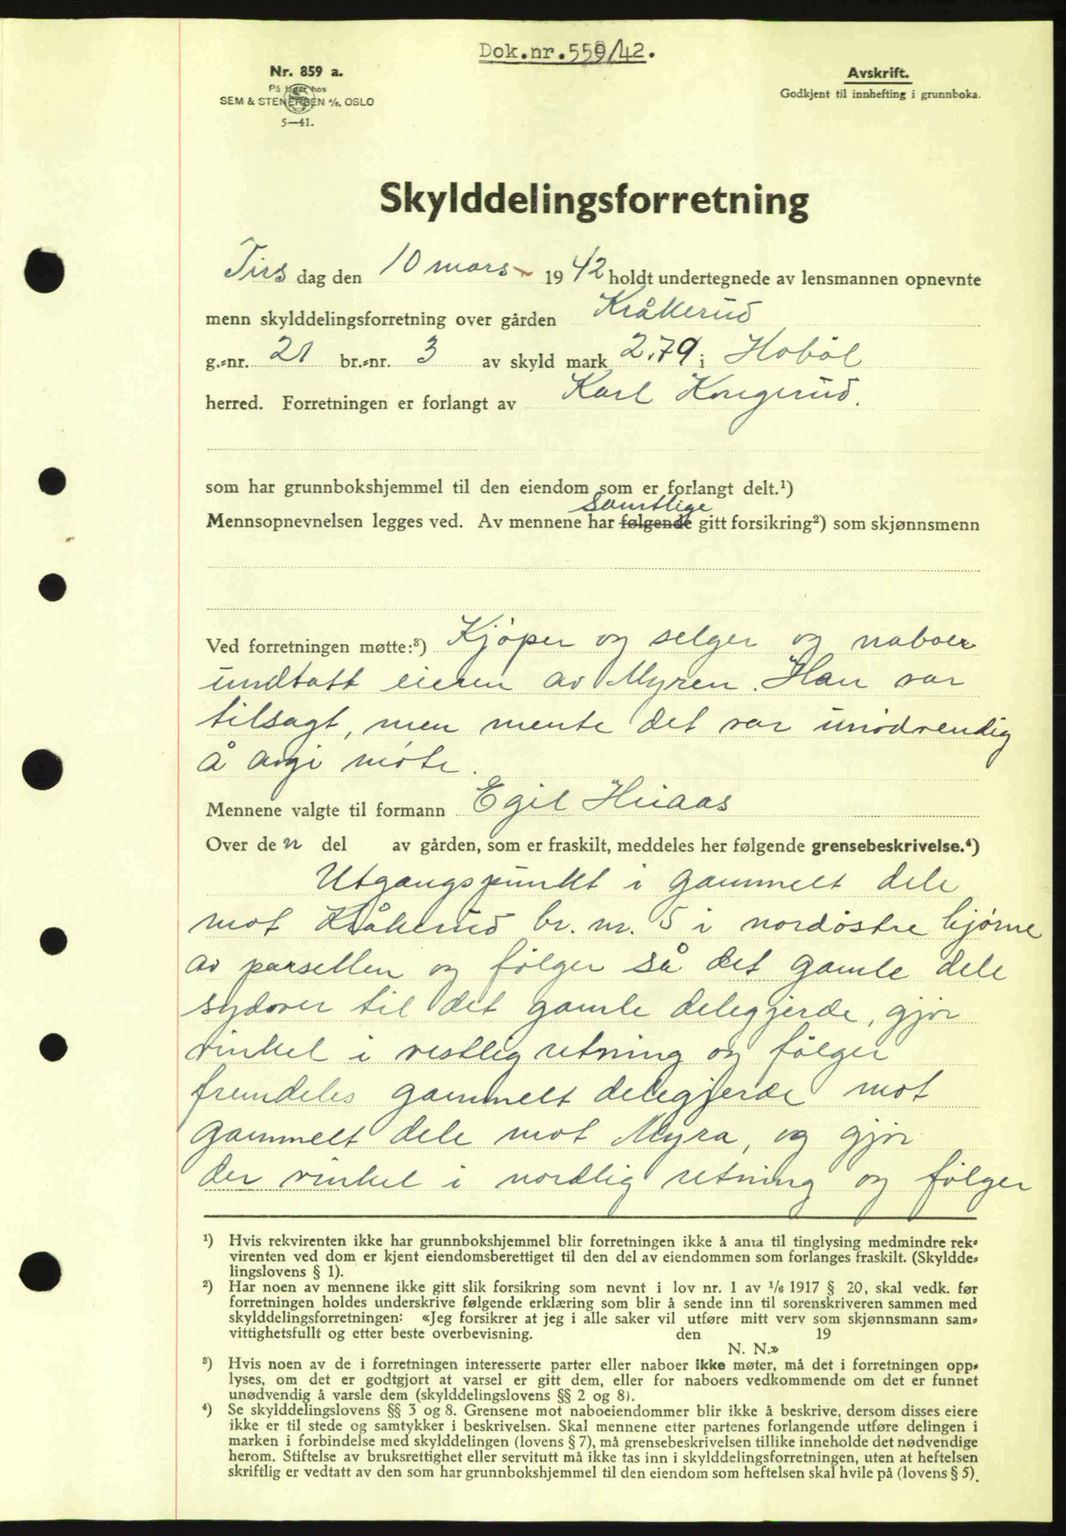 Dok.nr.559/42.
Nr. 859 a.
På lager hos
SEM & STENERSEN A/S, OSLO
5—41.
Avskrift.
Godkjent til innhefting i grunnboka.
Skylddelingsforretning
Tirs dag den 10 mars 19 42 holdt undertegnede av lensmannen opnevnte
menn skylddelingsforretning over gården Kråkerud
g.-nr. 21 br.-nr. 3 av skyld mark 2.79 i Hobøl
herred. Forretningen er forlangt av Karl Kongerud.
som har grunnbokshjemmel til den eiendom som er forlangt delt.¹)
samtlige
Mennsopnevnelsen legges ved. Av mennene har følgende gitt forsikring²) som skjønnsmenn
Ved forretningen møtte:³) Kjøper og selger og naboer
undtatt eieren av Myren. Han var
tilsagt, men mente det var unødvendig
å møte.
Mennene valgte til formann Egil Huaas
Over de n del av gården, som er fraskilt, meddeles her følgende grensebeskrivelse.⁴)
Utgangspunkt i gammelt dele
mot Kråkerud br. nr. 5 i nordøstre hjørne
av parsellen og følger så det gamle dele
sydover til det gamle delegjerde, gjør
vinkel i vestlig retning og følger
fremdeles gammelt delegjerde mot
gammelt dele mot Myra, og gjør
der vinkel i nordlig retning og følger
¹) Hvis rekvirenten ikke har grunnbokshjemmel blir forretningen ikke å anta til tinglysing medmindre rek-
virenten ved dom er kjent eiendomsberettiget til den del av eiendommen som forlanges fraskilt. (Skyldde-
lingslovens § 1).
²) Har noen av mennene ikke gitt slik forsikring som nevnt i lov nr. 1 av 1/6 1917 § 20, skal vedk. før
forretningen holdes underskrive følgende erklæring som blir å sende inn til sorenskriveren sammen med
skylddelingsforretningen: «Jeg forsikrer at jeg i alle saker vil utføre mitt verv som skjønnsmann sam-
vittighetsfullt og etter beste overbevisning. den 19
N. N.»
³) Hvis noen av de i forretningen interesserte parter eller naboer ikke møter, må det i forretningen opp-
lyses, om det er godtgjort at varsel er gitt dem, eller for naboers vedkommende om det er funnet
unødvendig å varsle dem (skylddelingslovens §§ 2 og 8).
⁴) Se skylddelingslovens §§ 3 og 8. Grensene mot naboeiendommer blir ikke å beskrive, dersom disses eiere
ikke er til stede og samtykker i beskrivelsen. Skal mennene etter partenes forlangende utføre delingen i
marken i forbindelse med skylddelingen (lovens § 7), må grensebeskrivelsen tillike inneholde det nødvendige
herom. Stiftelse av bruksrettighet eller servitutt må ikke tas inn i skylddelingsforretningen, uten at heftelsen
skriftlig er vedtatt av den som har grunnbokshjemmel til den eiendom som heftelsen skal hvile på (lovens § 5).